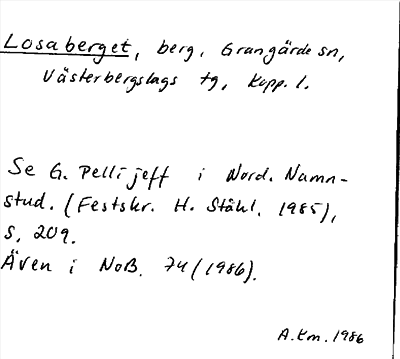 Losaberget, berg, Grangärde sn,
Västerbergslags tg, Kopp. l.
Se G. Pellijeff i Nord. Namn-
stud. (Festskr. H. Ståhl, 1985),
s. 209.
Även i NoB. 74 (1986).
A.Km. 1986